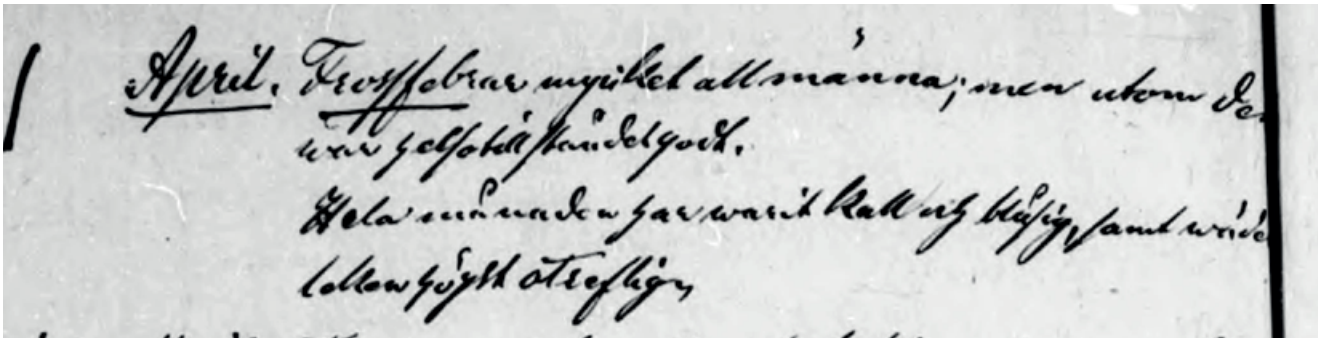 April. Frossfebrar mycket allmänna; men utom de
war helsotillståndet godt.
Hela månaden har warit kall och blåsig, samt wäde
högst otreflig